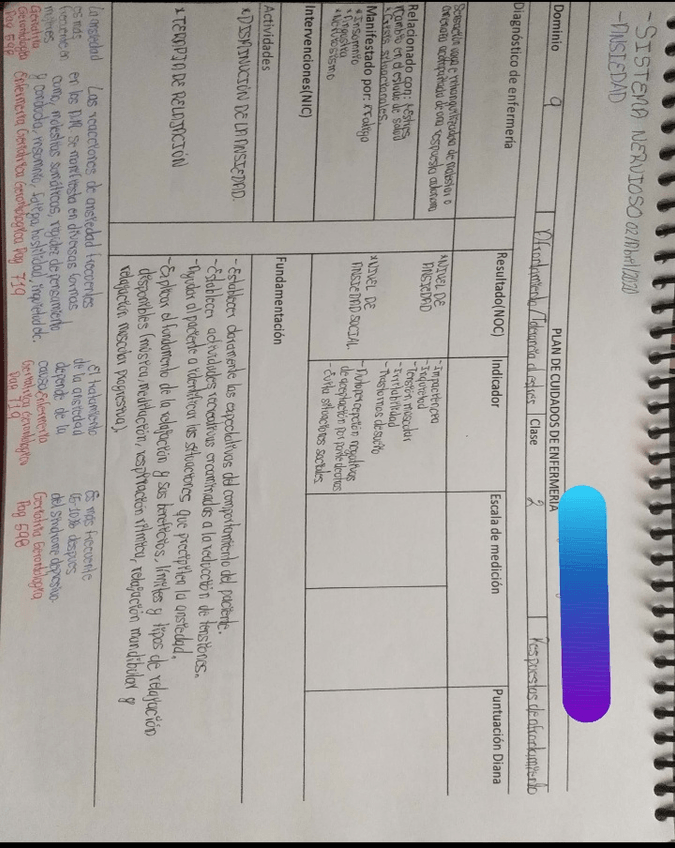 -SISTEMA NERVIOSO 02/Abril/2020
-ANSIEDAD
PLAN DE CUIDADOS DE ENFERMERIA
Dominio 9 Afrontamiento/Tolerancia al estrés Clase 2 Respuestas de afrontamiento
Diagnóstico de enfermería Resultado(NOC) Indicador Escala de medición Puntuación Diana
Sensación vaga e intranquilizadora de malestar o
amenaza acompañada de una respuesta autónoma
Relacionado con: *Estrés
*Cambio en el estado de salud
*Crisis situacionales
Manifestado por: *Fatiga
*Insomnio
*Angustia
*Nerviosismo
*NIVEL DE
ANSIEDAD
-Impaciencia
-Inquietud
-Tensión muscular
-Irritabilidad
-Trastornos de sueño
*NIVEL DE
ANSIEDAD SOCIAL.
-Autopercepción negativa
de aceptación por parte de otros
-Evita situaciones sociales
Intervenciones(NIC)
Actividades Fundamentación
*DISMINUCIÓN DE LA ANSIEDAD.
-Establecer claramente las expectativas del comportamiento del paciente.
-Establecer actividades recreativas encaminadas a la reducción de tensiones.
-Ayudar al paciente a identificar las situaciones que precipiten la ansiedad.
*TERAPIA DE RELAJACIÓN
-Explicar el fundamento de la relajación y sus beneficios, límites y tipos de relajación
disponibles (música, meditación, respiración rítmica, relajación mandibular y
relajación muscular progresiva).
La ansiedad
es mas
frecuente en
mujeres
Geriatría
Gerontología
Pag 598
Las reacciones de ansiedad frecuentes
en los A.M. se manifiesta en diversas formas
como, molestias somáticas, rigidez de pensamiento
y conducta, insomnio, fatiga, hostilidad, inquietud etc.
Enfermería Geriátrica Gerontológica Pag 719
El tratamiento
de la ansiedad
depende de la
causa Enfermería
Geriátrica Gerontológica
Pag 719
Es mas frecuente
después
del síndrome depresivo
Geriatría Gerontología
Pag 598